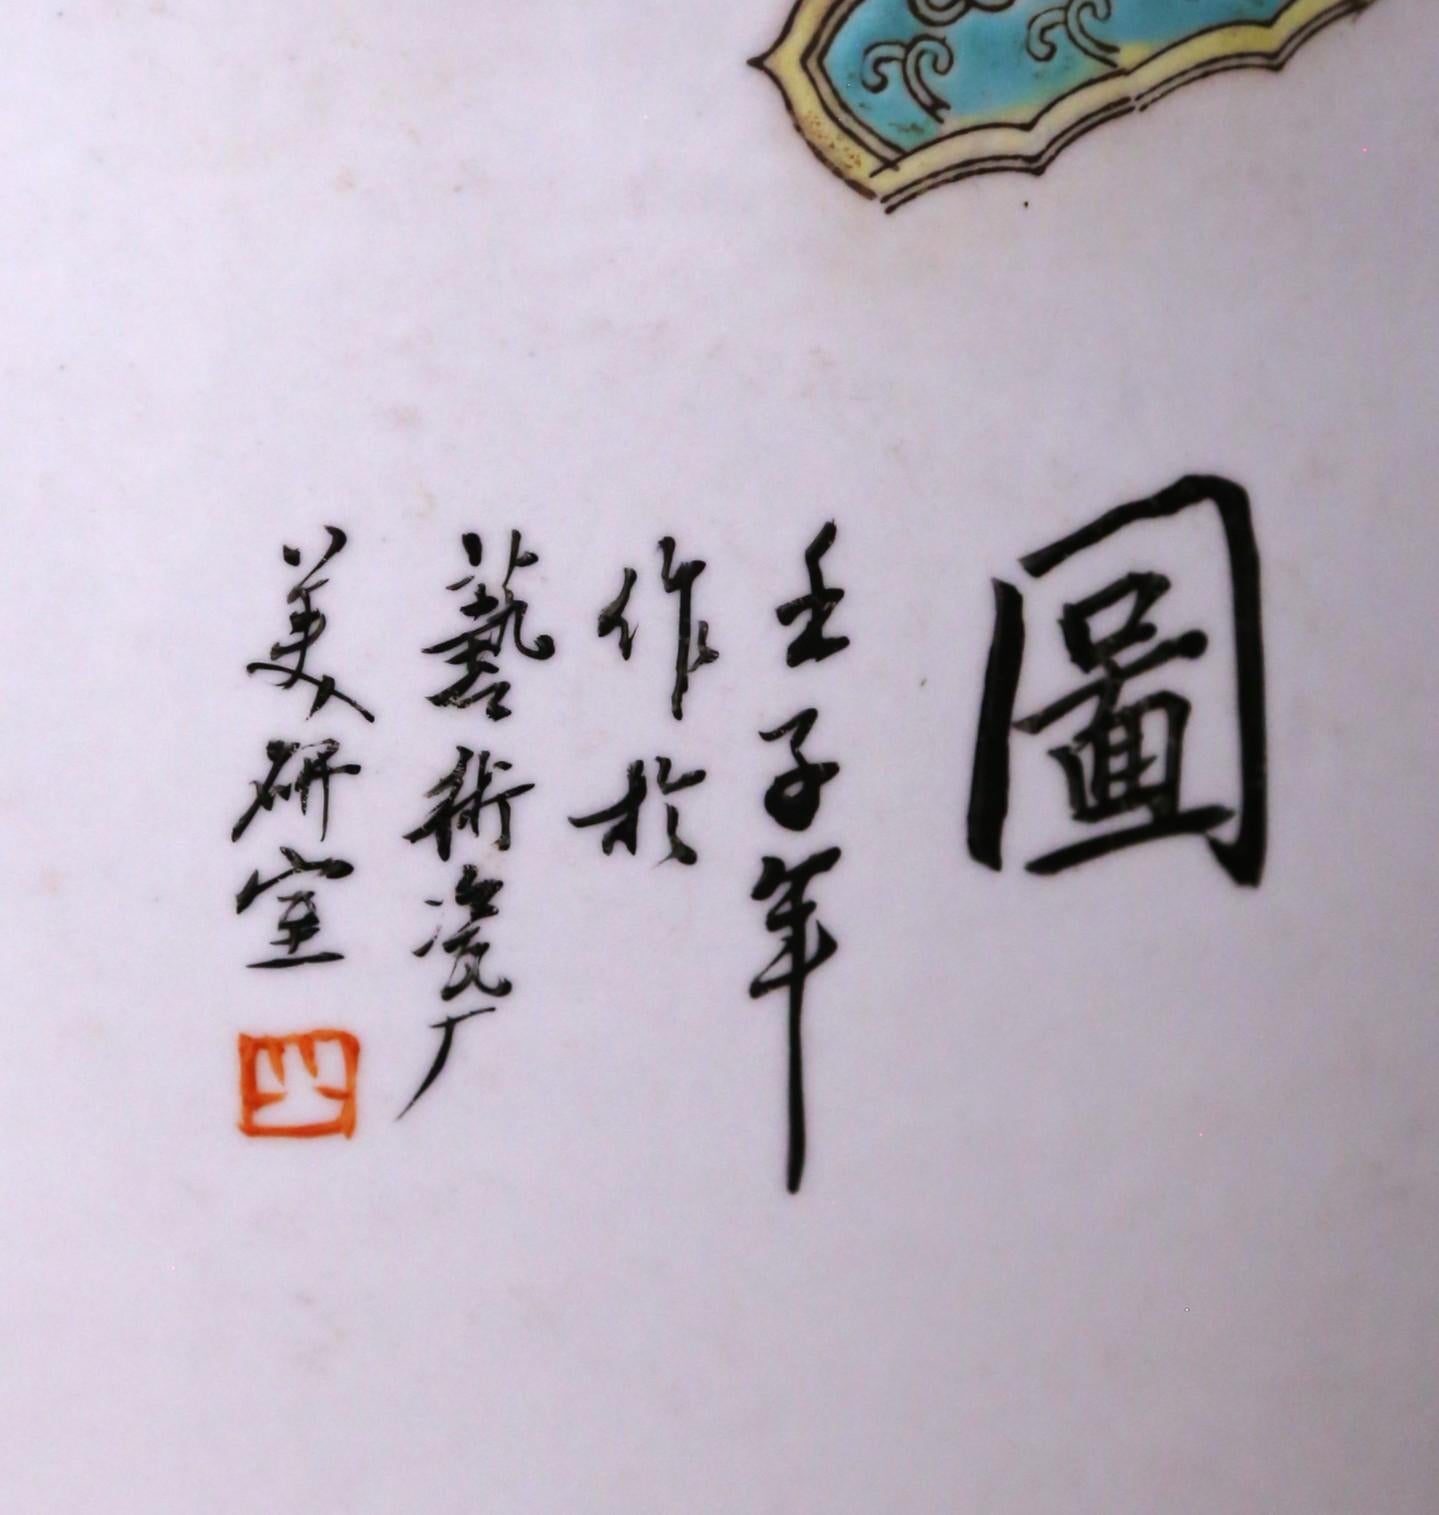 圖
壬子年
作於
藝術瓷厂
美研室